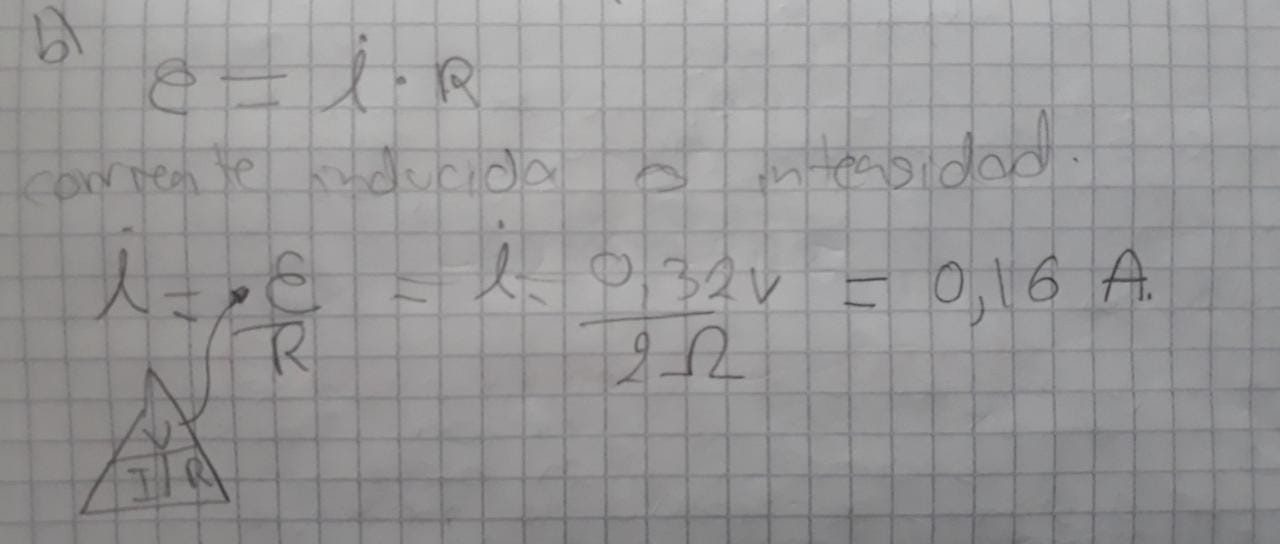 b)
e = i · R
corriente inducida o intensidad.
i = e/R = i = 0,32v/2Ω = 0,16 A.
V
I R